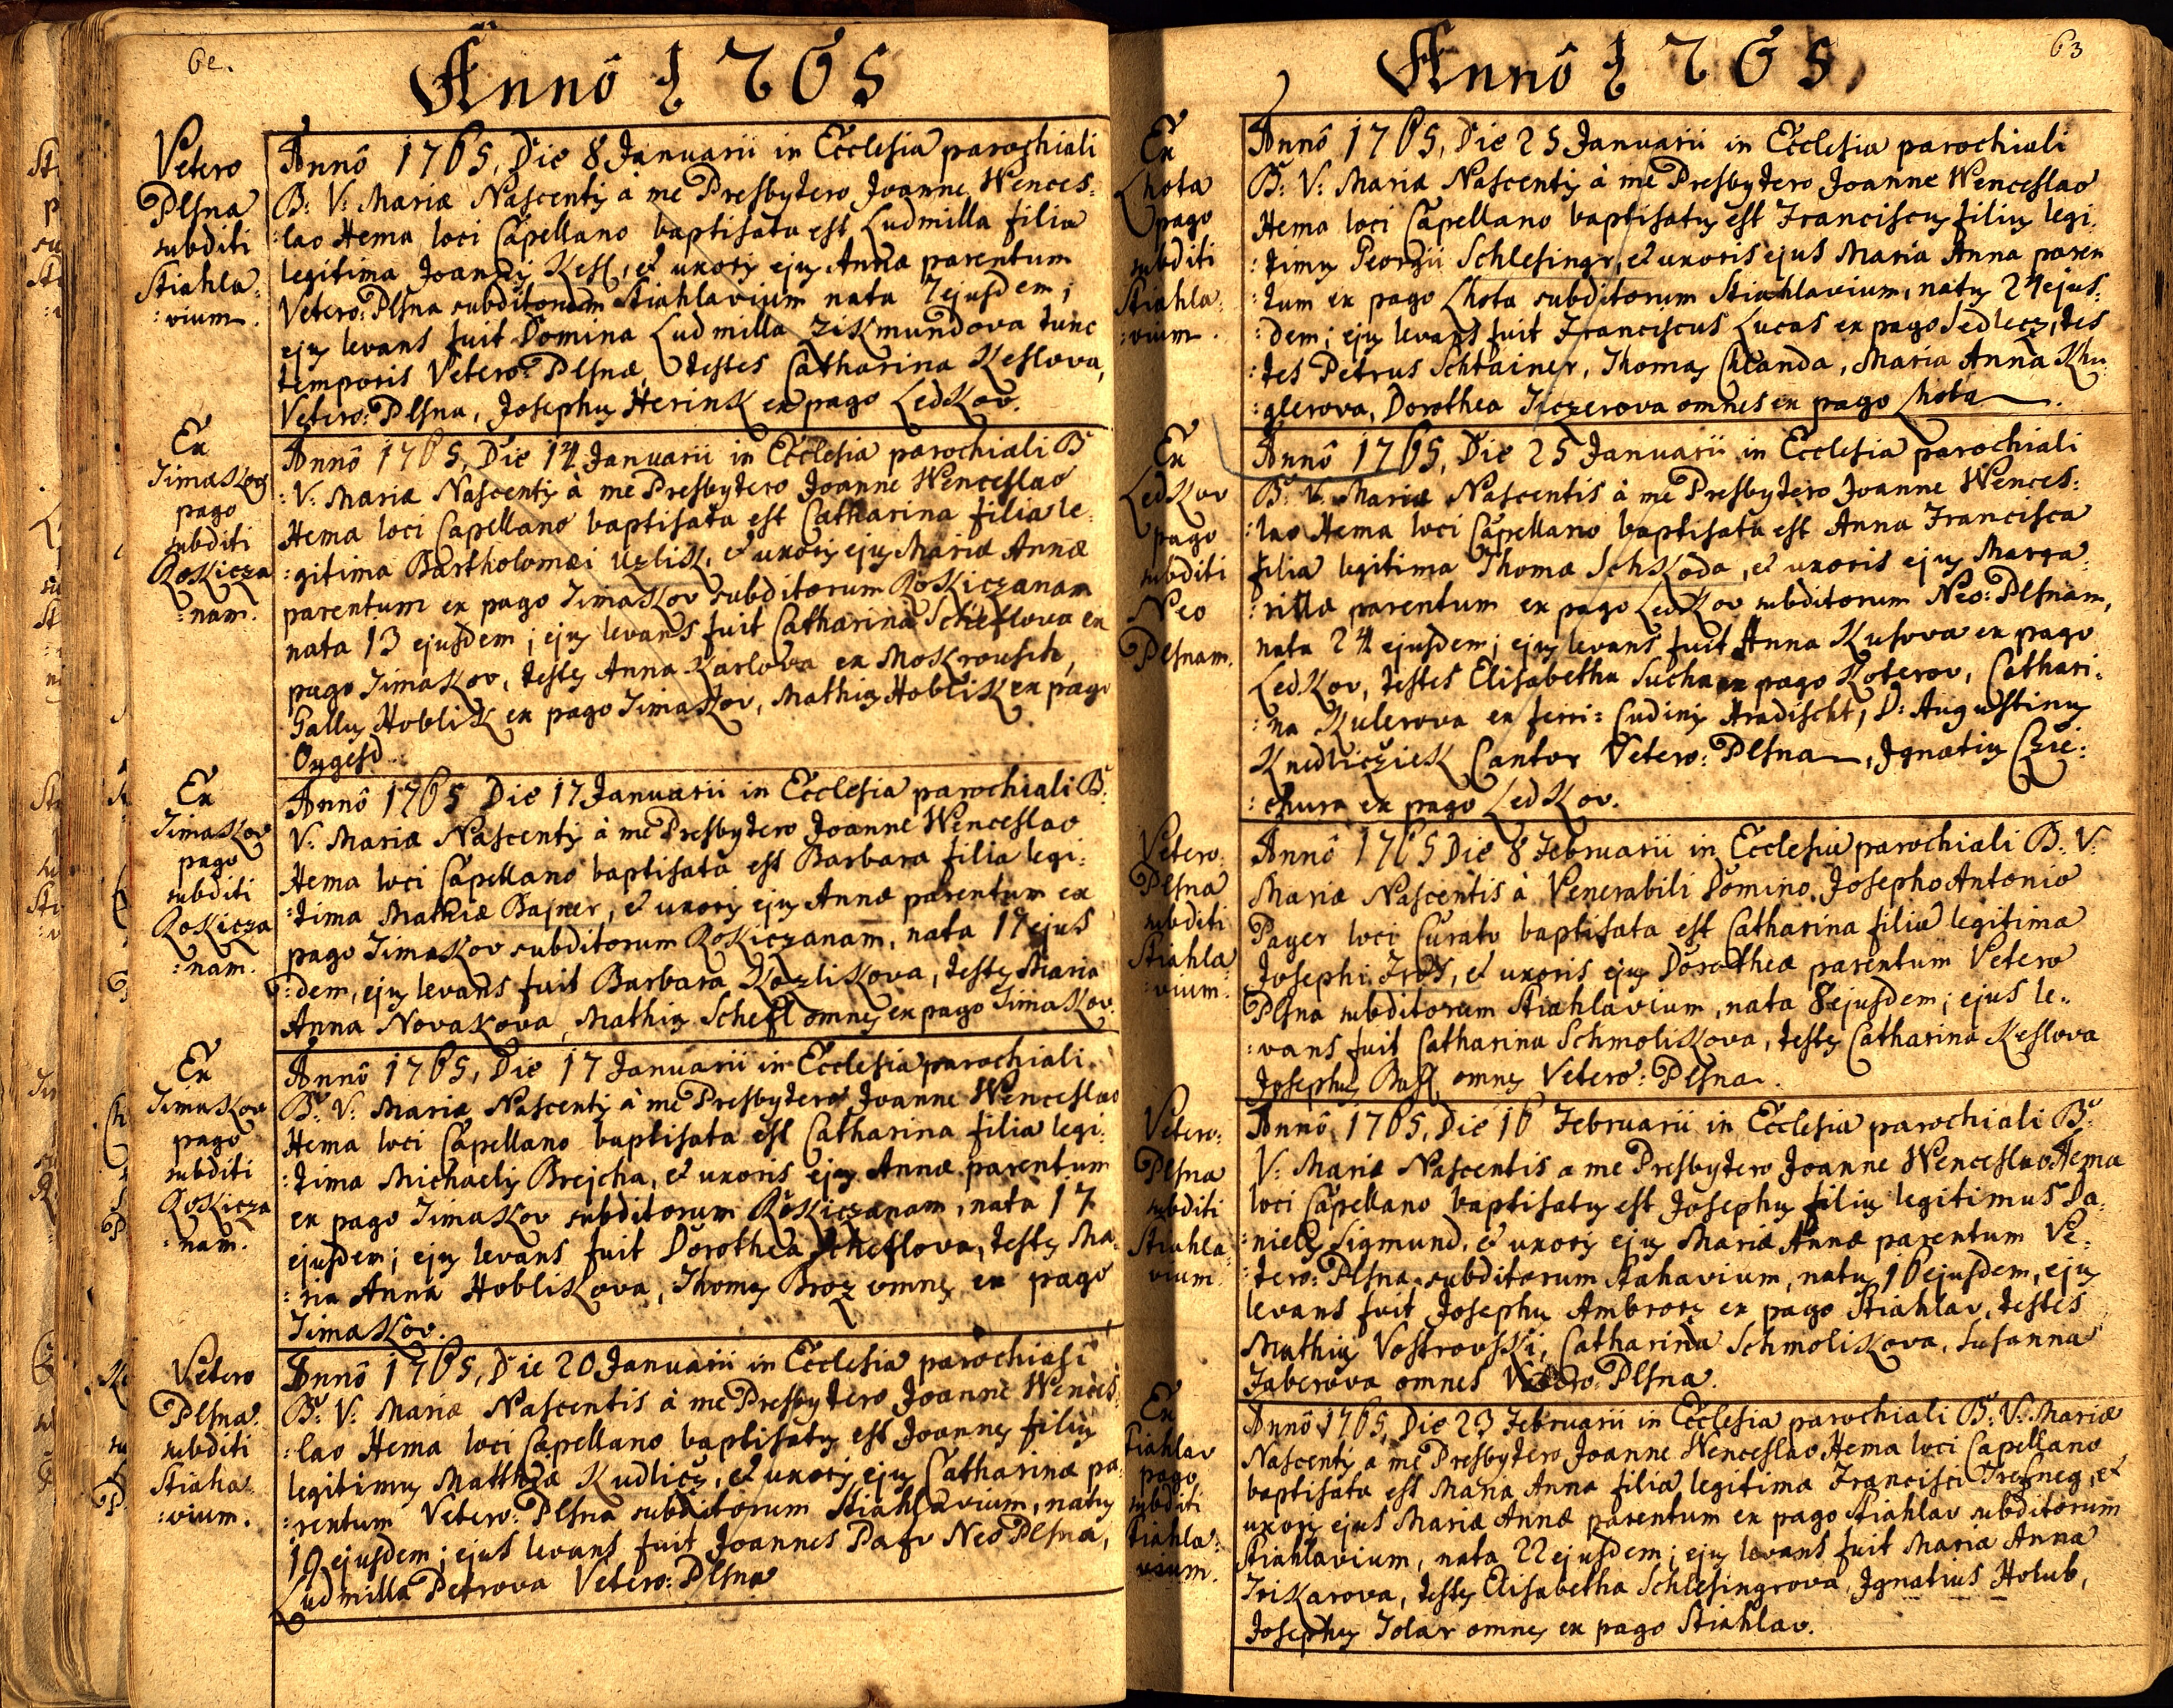 62.
Annô 1765
Vetero
Plsna
subditi
Stiahla:
:vium.
Annô 1765, Die 8 Januarii in Ecclesia parochiali
B: V: Mariæ Nascentis à me Presbytero Joanne Wences:
:lao Hema loci Capellano baptisata est Ludmilla filia
legitima Joannis Kesl, et uxoris ejus Anna parentum
Vetero: Plsna subditorum Stiahlavium nata 7 ejusdem;
ejus levans fuit Domina Ludmilla Zikmundova tunc
temporis Vetero: Plsnæ, testes Catharina Keslova,
Vetero: Plsna, Josephus Herink ex pago Ledkov.
Ex
Timakov
pago
subditi
Rokicza
:nam.
Annô 1765, Die 14 Januarii in Ecclesia parochiali B:
:V: Mariæ Nascentis à me Presbytero Joanne Wenceslao
Hema loci Capellano baptisata est Catharina filia le:
:gitima Bartholomæi Uzlik, et uxoris ejus Mariæ Annæ
parentum ex pago Timakov subditorum Rokiczanam
nata 13 ejusdem; ejus levans fuit Catharina Scheflova ex
pago Timakov, testes Anna Karlova ex Mokrousch,
Gallus Hoblik ex pago Timakov, Mathias Hoblik ex pago
Ougesd.
Ex
Timakov
pago
subditi
Rokicza
:nam.
Annô 1765 Die 17 Januarii in Ecclesia parochiali B:
V: Mariæ Nascentis à me Presbytero Joanne Wenceslao
Hema loci Capellano baptisata est Barbara filia legi:
:tima Mathiæ Bajner, et uxoris ejus Annæ parentum ex
pago Timakov subditorum Rokiczanam, nata 17 ejus
:dem, ejus levans fuit Barbara Kozlikova, testes Maria
Anna Novakova, Mathias Schefl omnes ex pago Timakov.
Ex
Timakov
pago
subditi
Rokicza
:nam.
Annô 1765, Die 17 Januarii in Ecclesia parochiali
B: V: Mariæ Nascentis à me Presbytero Joanne Wenceslao
Hema loci Capellano baptisata est Catharina filia legi:
:tima Michaelis Brejcha, et uxoris ejus Annæ parentum
ex pago Timakov subditorum Rokiczanam, nata 17
ejusdem; ejus levans fuit Dorothea Scheflova, testes Ma:
:ria Anna Hoblikova, Thomas Broz omnes ex pago
Timakov.
Vetero
Plsna
subditi
Stiaha:
:vium.
Annô 1765, Die 20 Januarii in Ecclesia parochiali
B: V: Mariæ Nascentis à me Presbytero Joanne Wences:
:lao Hema loci Capellano baptisatus est Joannes filius
legitimus Matthiæ Kudlicz, et uxoris ejus Catharinæ pa:
:rentum Vetero: Plsna subditorum Stiahlavium, natus
19 ejusdem; ejus levans fuit Joannes Neo Plsna,
Ludmilla Petrova Vetero: Plsna
63
Annô 1765,
Ex
Lhota
pago
subditi
Stiahla:
:vium.
Annô 1765, Die 25 Januarii in Ecclesia parochiali
B: V: Mariæ Nascentis à me Presbytero Joanne Wenceslao
Hema loci Capellano baptisatus est Franciscus filius legi:
:timus Georgii Schlesingr, et uxoris ejus Maria Anna paren
:tum ex pago Lhota subditorum Stiahlavium, natus 24 ejus:
:dem; ejus levans fuit Franciscus Lucas ex pago Sedlecz, tes
:tes Petrus Schtainer, Thomas Chlanda, Maria Anna Khu
:glerova, Dorothea Ticzerova omnes ex pago Lhota.
Ex
Ledkov
pago
subditi
Neo
Plsnam.
Annô 1765, Die 25 Januarii in Ecclesia parochiali
B: V: Mariæ Nascentis à me Presbytero Joanne Wences:
:lao Hema loci Capellano baptisata est Anna Francisca
filia legitima Thomæ Schkoda, et uxoris ejus Marga:
:rittæ parentum ex pago Ledkov subditorum Neo: Plsnam,
nata 24 ejusdem; ejus levans fuit Anna Kusova ex pago
Ledkov, testes Elisabetha Sucha ex pago Koterov, Cathari:
:na Kulerova ex ferri: Cudinis Hradischt, D: Augustinus
Knedlicziek Cantor Vetero: Plsna, Ignatius Czie:
:chura ex pago Ledkov.
Vetero:
Plsna
subditi
Stiahla
:vium.
Annô 1765 Die 8 Februarii in Ecclesia parochiali B: V:
Mariæ Nascentis à Venerabili Domino Josepho Antonio
Payer loci Curato baptisata est Catharina filia legitima
Josephi Irot, et uxoris ejus Dorotheæ parentum Vetero
Plsna subditorum Stiahlavium, nata 8 ejusdem; ejus le:
:vans fuit Catharina Schmolikova, testes Catharina Keslova
Josephus Busl omnes Vetero: Plsna.
Vetero:
Plsna
subditi
Stiahla
:vium.
Annô 1765, Die 16 Februarii in Ecclesia parochiali B:
V: Mariæ Nascentis a me Presbytero Joanne Wenceslao Hema
loci Capellano baptisatus est Josephus filius legitimus Da:
:nielis Sigmund, et uxoris ejus Mariæ Annæ parentum Ve:
:tero: Plsna subditorum Stahavium, natus 16 ejusdem, ejus
levans fuit Josephus Ambrozs ex pago Stiahlav, testes
Mathias Vostrovski, Catharina Schmolikova, Susanna
Faberova omnes Vetero: Plsna.
Ex
Stiahlav
pago
subditi
Stiahla:
vium.
Annô 1765, Die 23 Februarii in Ecclesia parochiali B: V: Mariæ
Nascentis a me Presbytero Joanne Wenceslao Hema loci Capellano
baptisata est Maria Anna filia legitima Francisci Tresneg, et
uxoris ejus Mariæ Annæ parentum ex pago Stiahlav subditorum
Stiahlavium, nata 22 ejusdem; ejus levans fuit Maria Anna
Trikarova, testes Elisabetha Schlesingrova, Ignatius Holub,
Josephus Tolar omnes ex pago Stiahlav.